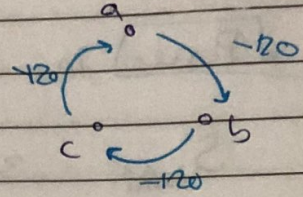 a
-120
-120
c
b
-120